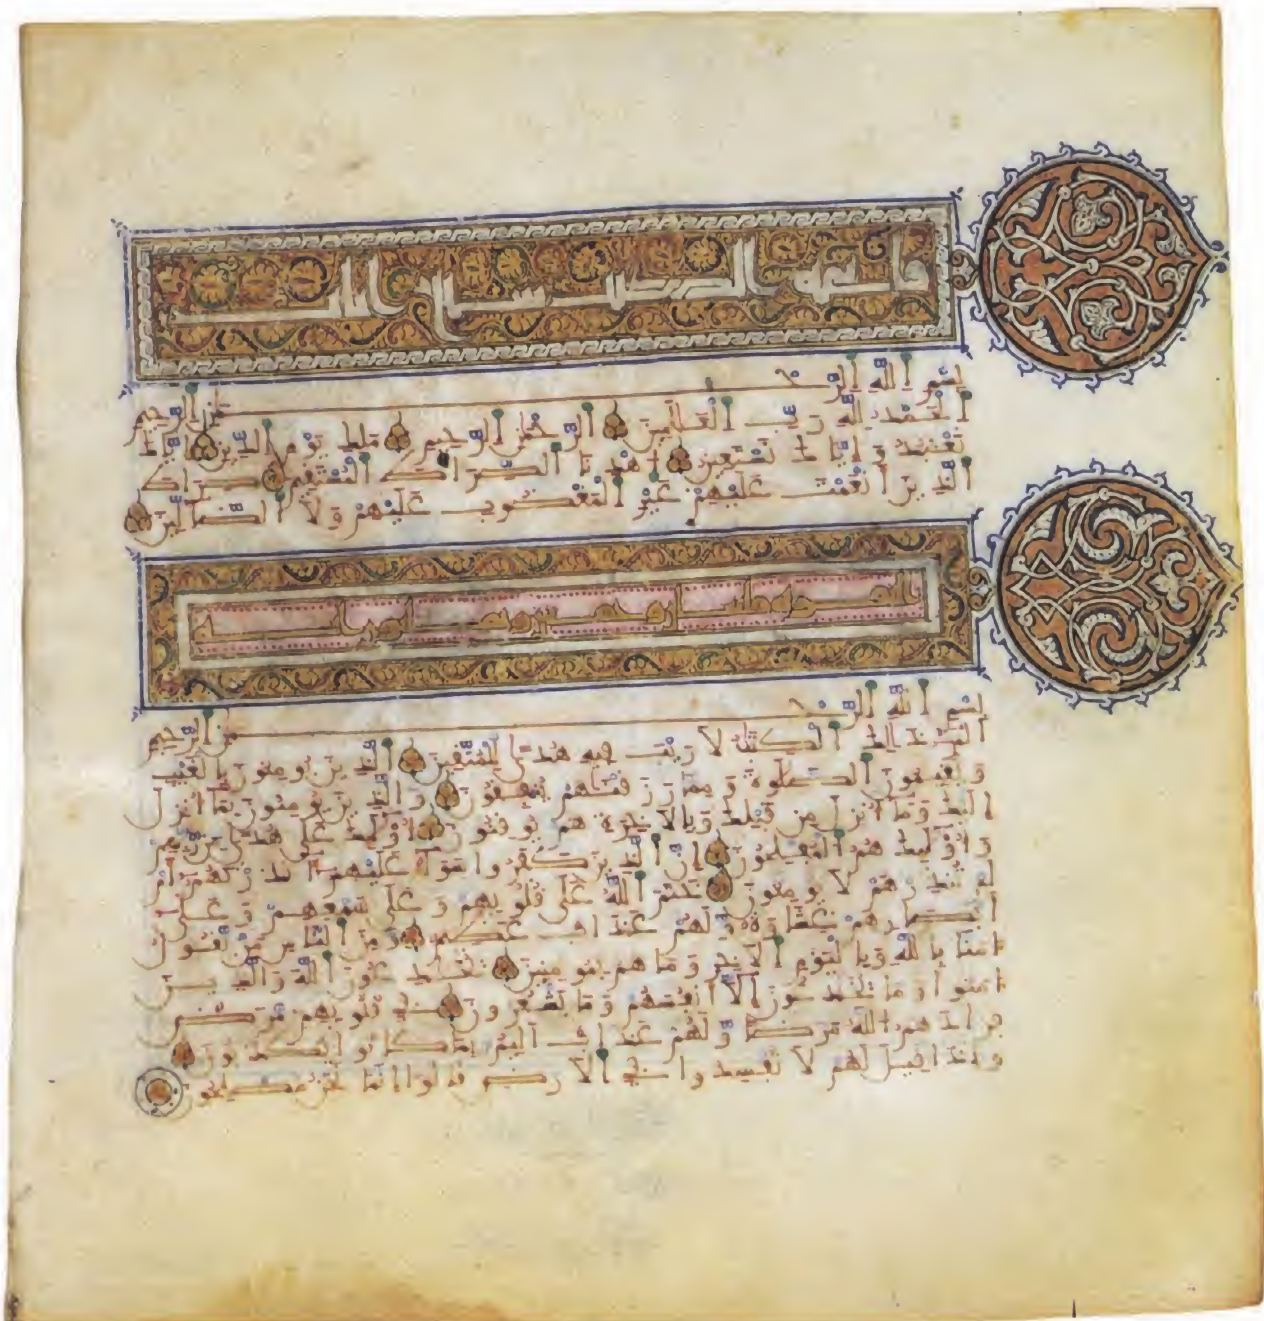 فاتحة الكتاب سبع ايات
بسم الله الرحمن الرحيم
الحمد لله رب العلمين الرحمن الرحيم ملك يوم الدين اياك
نعبد واياك نستعين اهدنا الصراط المستقيم صراط
الذين انعمت عليهم غير المغضوب عليهم ولا الضالين
البقرة وخمس اية
بسم الله الرحمن الرحيم
الم ذلك الكتب لا ريب فيه هدى للمتقين الذين يومنون بالغيب
ويقيمون الصلوة ومما رزقنهم ينفقون والذين يومنون بما انزل
اليك وما انزل من قبلك وبالاخرة هم يوقنون اولئك على هدى من ربهم
واولئك هم المفلحون ان الذين كفروا سواء عليهم ءانذرتهم ام
لم تنذرهم لا يومنون ختم الله على قلوبهم وعلى سمعهم وعلى
ابصارهم غشاوة ولهم عذاب عظيم ومن الناس من يقول
ءامنا بالله وباليوم الاخر وما هم بمومنين يخدعون الله والذين
ءامنوا وما يخدعون الا انفسهم وما يشعرون في قلوبهم مرض
فزادهم الله مرضا ولهم عذاب اليم بما كانوا يكذبون
واذا قيل لهم لا تفسدوا في الارض قالوا انما نحن مصلحون